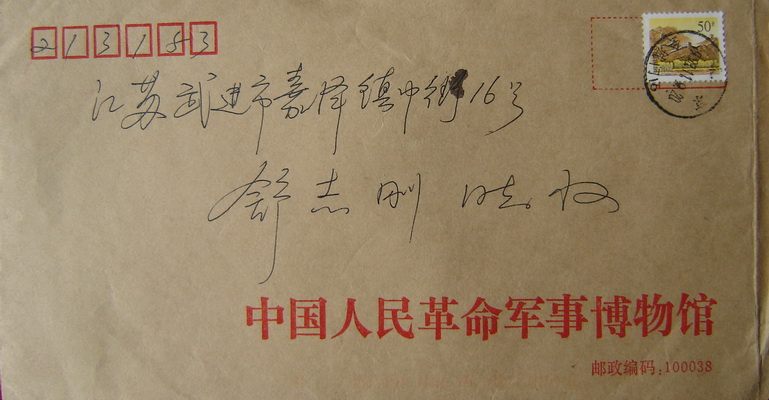 213183
50分
江苏武进市嘉泽镇中街16号
舒志刚 收
中国人民革命军事博物馆
邮政编码:100038